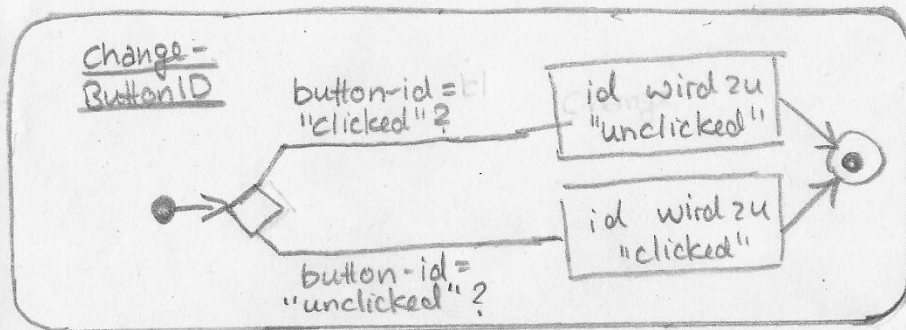 Change-
ButtonID
button-id=
"clicked"?
id wird zu
"unclicked"
id wird zu
"clicked"
button-id=
"unclicked"?